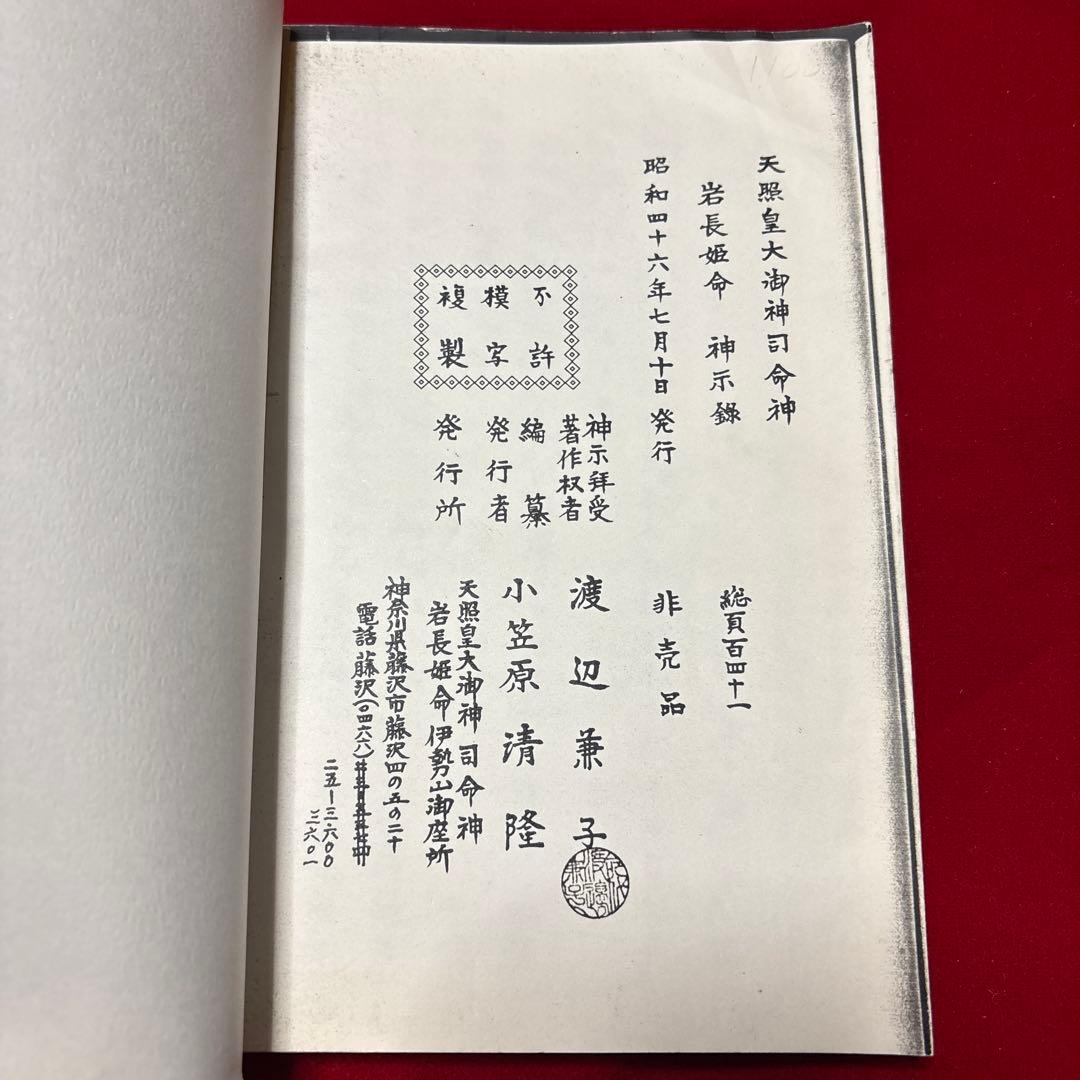 天照皇大御神司命神
岩長姫命 神示錄
総頁百四十一
昭和四十六年七月十日 発行
非売品
不許
模写
複製
神示拜受
著作权者
渡辺兼子
編纂
発行者
小笠原清隆
発行所
天照皇大御神司命神
岩長姫命伊勢山御座所
神奈川県藤沢市藤沢四の五の二十
電話藤沢(〇四六六)
二五ー三・六〇〇
三六〇一